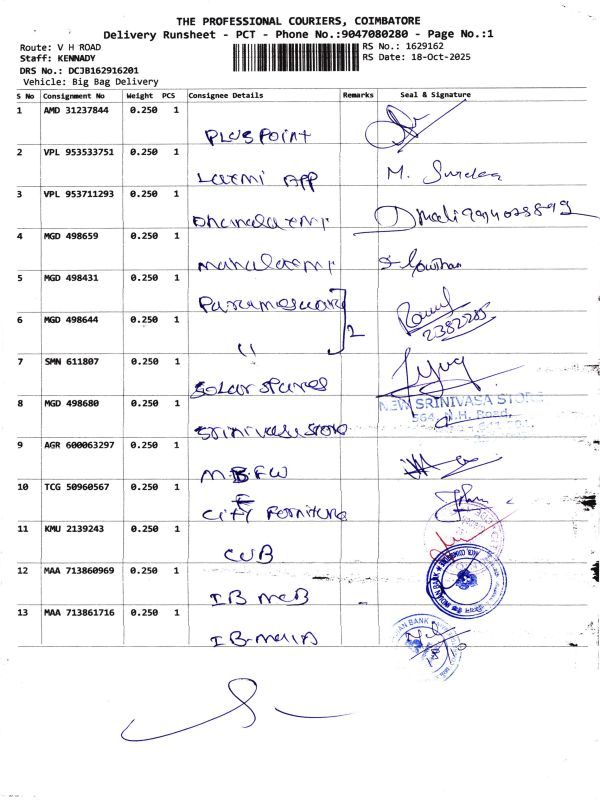 THE PROFESSIONAL COURIERS, COIMBATORE
Delivery Runsheet - PCT - Phone No.:9047080280 - Page No.:1
Route: V H ROAD
RS No.: 1629162
Staff: KENNADY
RS Date: 18-Oct-2025
DRS No.: DCJB162916201
Vehicle: Big Bag Delivery
S No Consignment No Weight PCS Consignee Details Remarks Seal & Signature
1 AMD 31237844 0.250 1
PLUS POINT
2 VPL 953533751 0.250 1
Laxmi APP M.
3 VPL 953711293 0.250 1
Dhanalaxmi
4 MGD 498659 0.250 1
mahalaxmi Gowthan
5 MGD 498431 0.250 1
Parameswari
2
6 MGD 498644 0.250 1
2382285
11
7 SMN 611807 0.250 1
Solar Spares
8 MGD 498680 0.250 1
NEW SRINIVASA STORE
564, N.H. Road,
Srinivasa Store
9 AGR 600063297 0.250 1
10 TCG 50960567 0.250 1
City Furniture
11 KMU 2139243 0.250 1
CUB
12 MAA 713860969 0.250 1
INDIAN BANK
IB MCB
13 MAA 713861716 0.250 1
INDIAN BANK
IB-Main